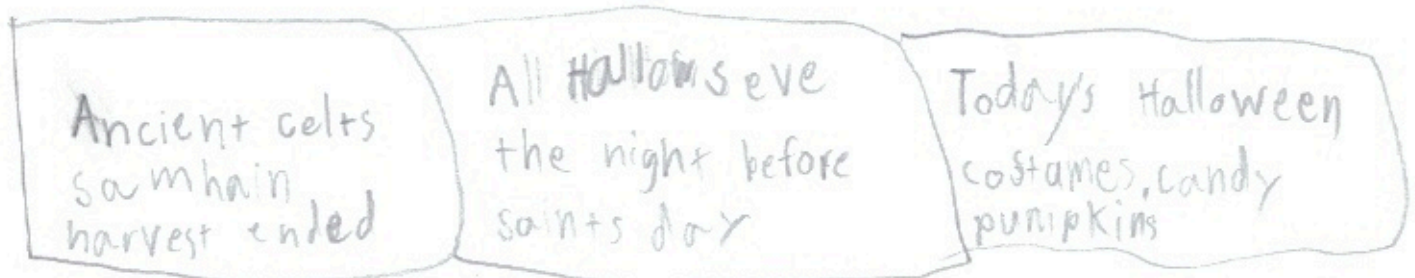 Ancient celts
samhain
harvest ended
All Hallows eve
the night before
saints day
Today's Halloween
costames, candy
pumpkins